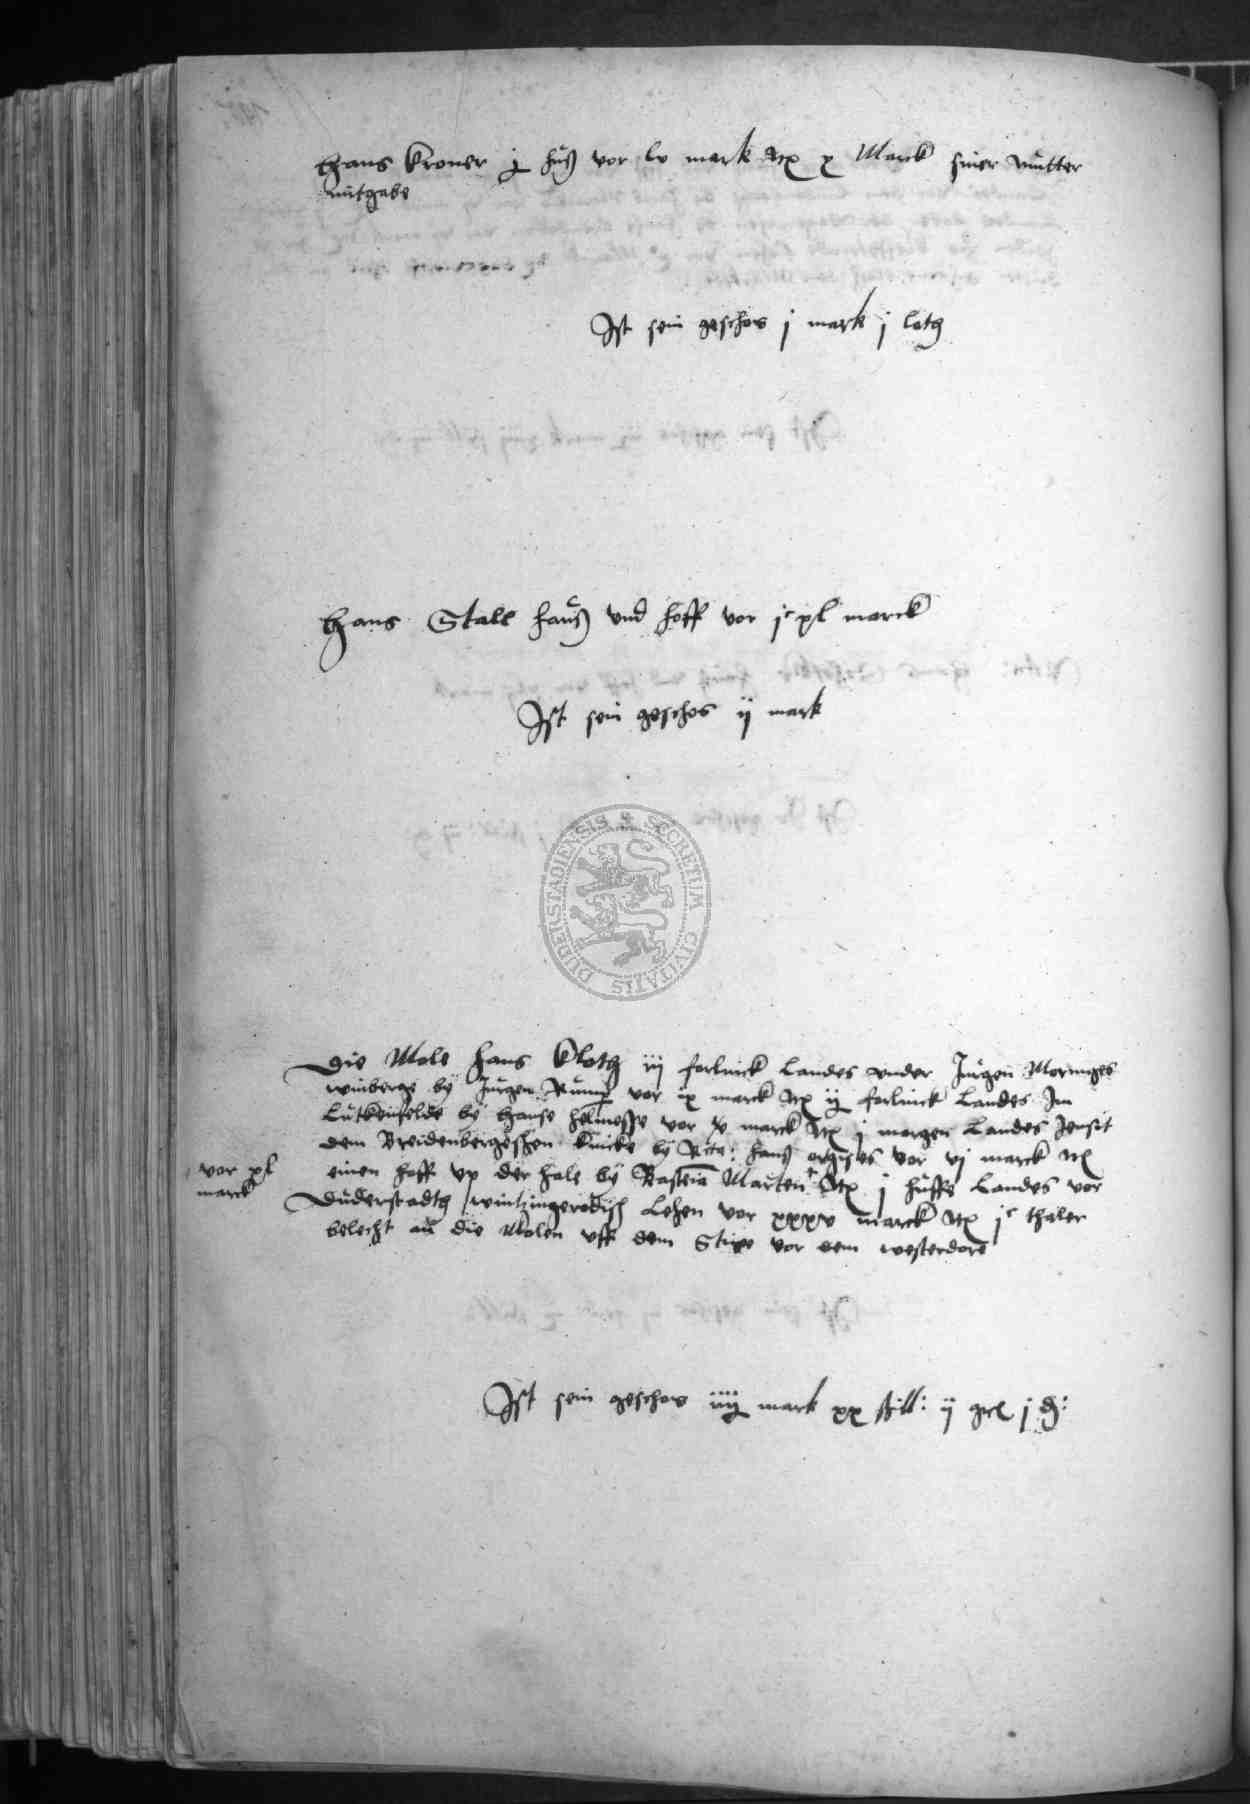 Hans Kroner j huß vor lv mark Itē x Marck siner mutter
mitgabe
Ist sein geschos j mark j loth
Hans Stall hauß vnd hoff vor jc xl marck
Ist sein geschos ij mark
DUDERSTADIENSIS & SECRETUM CIVITATIS
Die Mole Hans Kloth iij forlinck Landes vnder Jurgen Moringes
winberge by Jurgen vor ix marck Itē ij forlinck Landes Im
Lutkenfelde by Hanse Helmolffe vor x marck Itē j morgen Landes Jensit
dem Breidenbergeschen by hans vor vj marck Itē
vor xl
marck
einen hoff vp der hale by Marten Itē j huffe Landes vor
Duderstadth wintzingerodisch Lehen vor xxxv marck Itē jc thaler
belecht an die Molen vff dem vor dem westerdore
Ist sein geschos iiij mark xx ßill: ij j d: